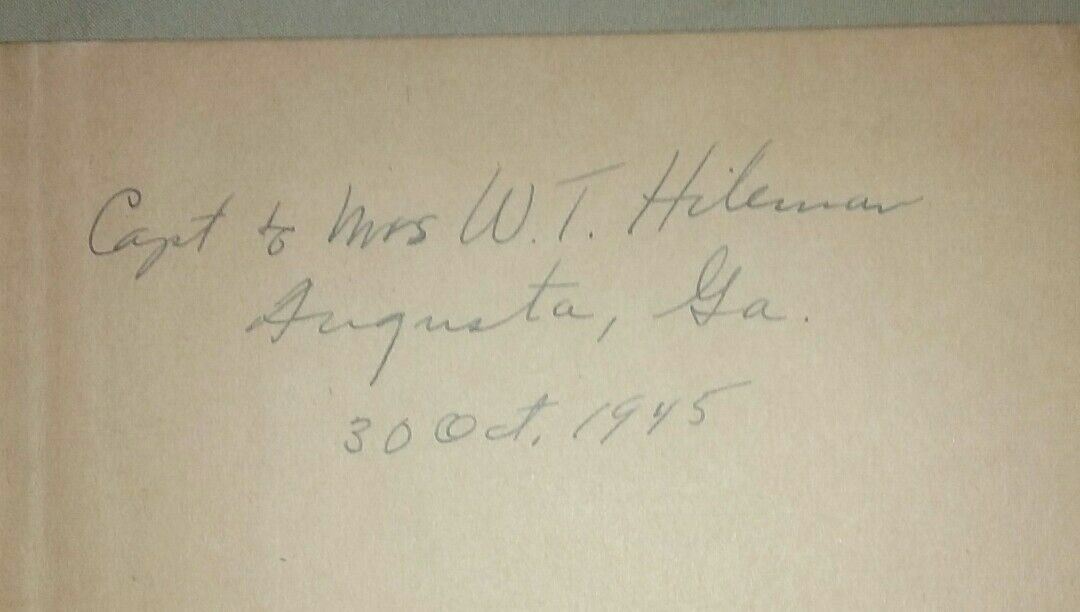 Capt & Mrs W. T. Hileman
Augusta, Ga.
30 Oct. 1945